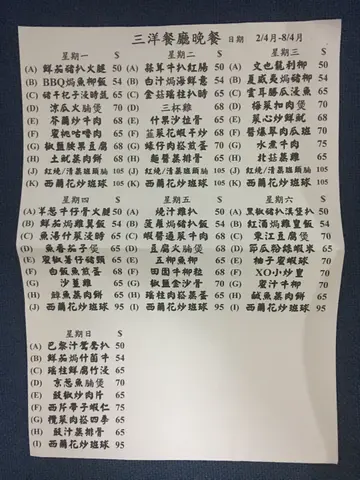 三洋餐廳晚餐 日期 2/4月-8/4月
星期一 $
(A) 鮮茄豬扒火腿 50
(B) BBQ焗魚柳飯 54
(C) 杞子浸時蔬 65
(D) 涼瓜火腩煲 70
(E) 芥蘭炒牛肉 68
(F) 蜜桃咕嚕肉 65
(G) 椒鹽腰果豆腐 68
(H) 土魷蒸肉餅 68
(J) 紅燒/清蒸班頭腩 105
(K) 西蘭花炒班球 105
星期二 $
(A) 蒜茸牛扒紅腸 50
(B) 白汁焗海鮮意 54
(C) 金菇瑤柱扒時 65
(D) 三杯雞 68
(E) 什果沙拉骨 65
(F) 韮菜花蝦干炒 68
(G) 蠔仔肉崧煎蛋 70
(H) 麵醬蒸排骨 65
(J) 紅燒/清蒸班頭腩 105
(K) 西蘭花炒班球 105
星期三 $
(A) 文也龍利柳 50
(B) 夏威夷焗豬柳 54
(C) 雲耳勝瓜浸魚 65
(D) 梅菜扣肉煲 70
(E) 菜心炒鮮魷 68
(F) 醬爆翠肉瓜班 70
(G) 水煮牛肉 75
(H) 北菇蒸雞 65
(J) 紅燒/清蒸班頭腩 105
(K) 西蘭花炒班球 105
星期四 $
(A) 羊葱牛仔骨火腿 50
(B) 鮮茄焗雞翼飯 54
(C) 魚湯什菜浸時 65
(D) 魚香茄子煲 65
(E) 蜜椒薯仔豬頸 65
(F) 白飯魚煎蛋 68
(G) 沙薑雞 65
(H) 鯪魚蒸肉餅 68
(J) 西蘭花炒班球 95
星期五 $
(A) 燒汁雞扒 50
(B) 菠蘿焗豬扒飯 54
(C) 蝦醬通菜牛肉 68
(D) 豆腐火腩煲 70
(E) 五柳魚柳 65
(F) 田園牛柳粒 68
(G) 椒鹽金沙骨 70
(H) 瑤柱肉崧蒸蛋 65
(J) 西蘭花炒班球 95
星期六 $
(A) 黑椒豬扒漢堡扒 50
(B) 紅酒焗雞皇飯 54
(C) 東江豆腐煲 70
(D) 節瓜粉絲蝦米 65
(E) 柚子蜜蝦球 70
(F) XO小炒皇 70
(G) 蜜汁牛柳 70
(H) 鹹魚蒸肉餅 68
(J) 西蘭花炒班球 95
星期日 $
(A) 巴黎汁鴛鴦扒 50
(B) 鮮茄焗什菌牛 54
(C) 瑤柱鮮腐竹浸 65
(D) 京葱魚腩煲 70
(E) 豉椒炒肉片 65
(F) 西芹帶子蝦仁 75
(G) 欖菜肉崧四季 65
(H) 豉汁蒸排骨 65
(J) 西蘭花炒班球 95